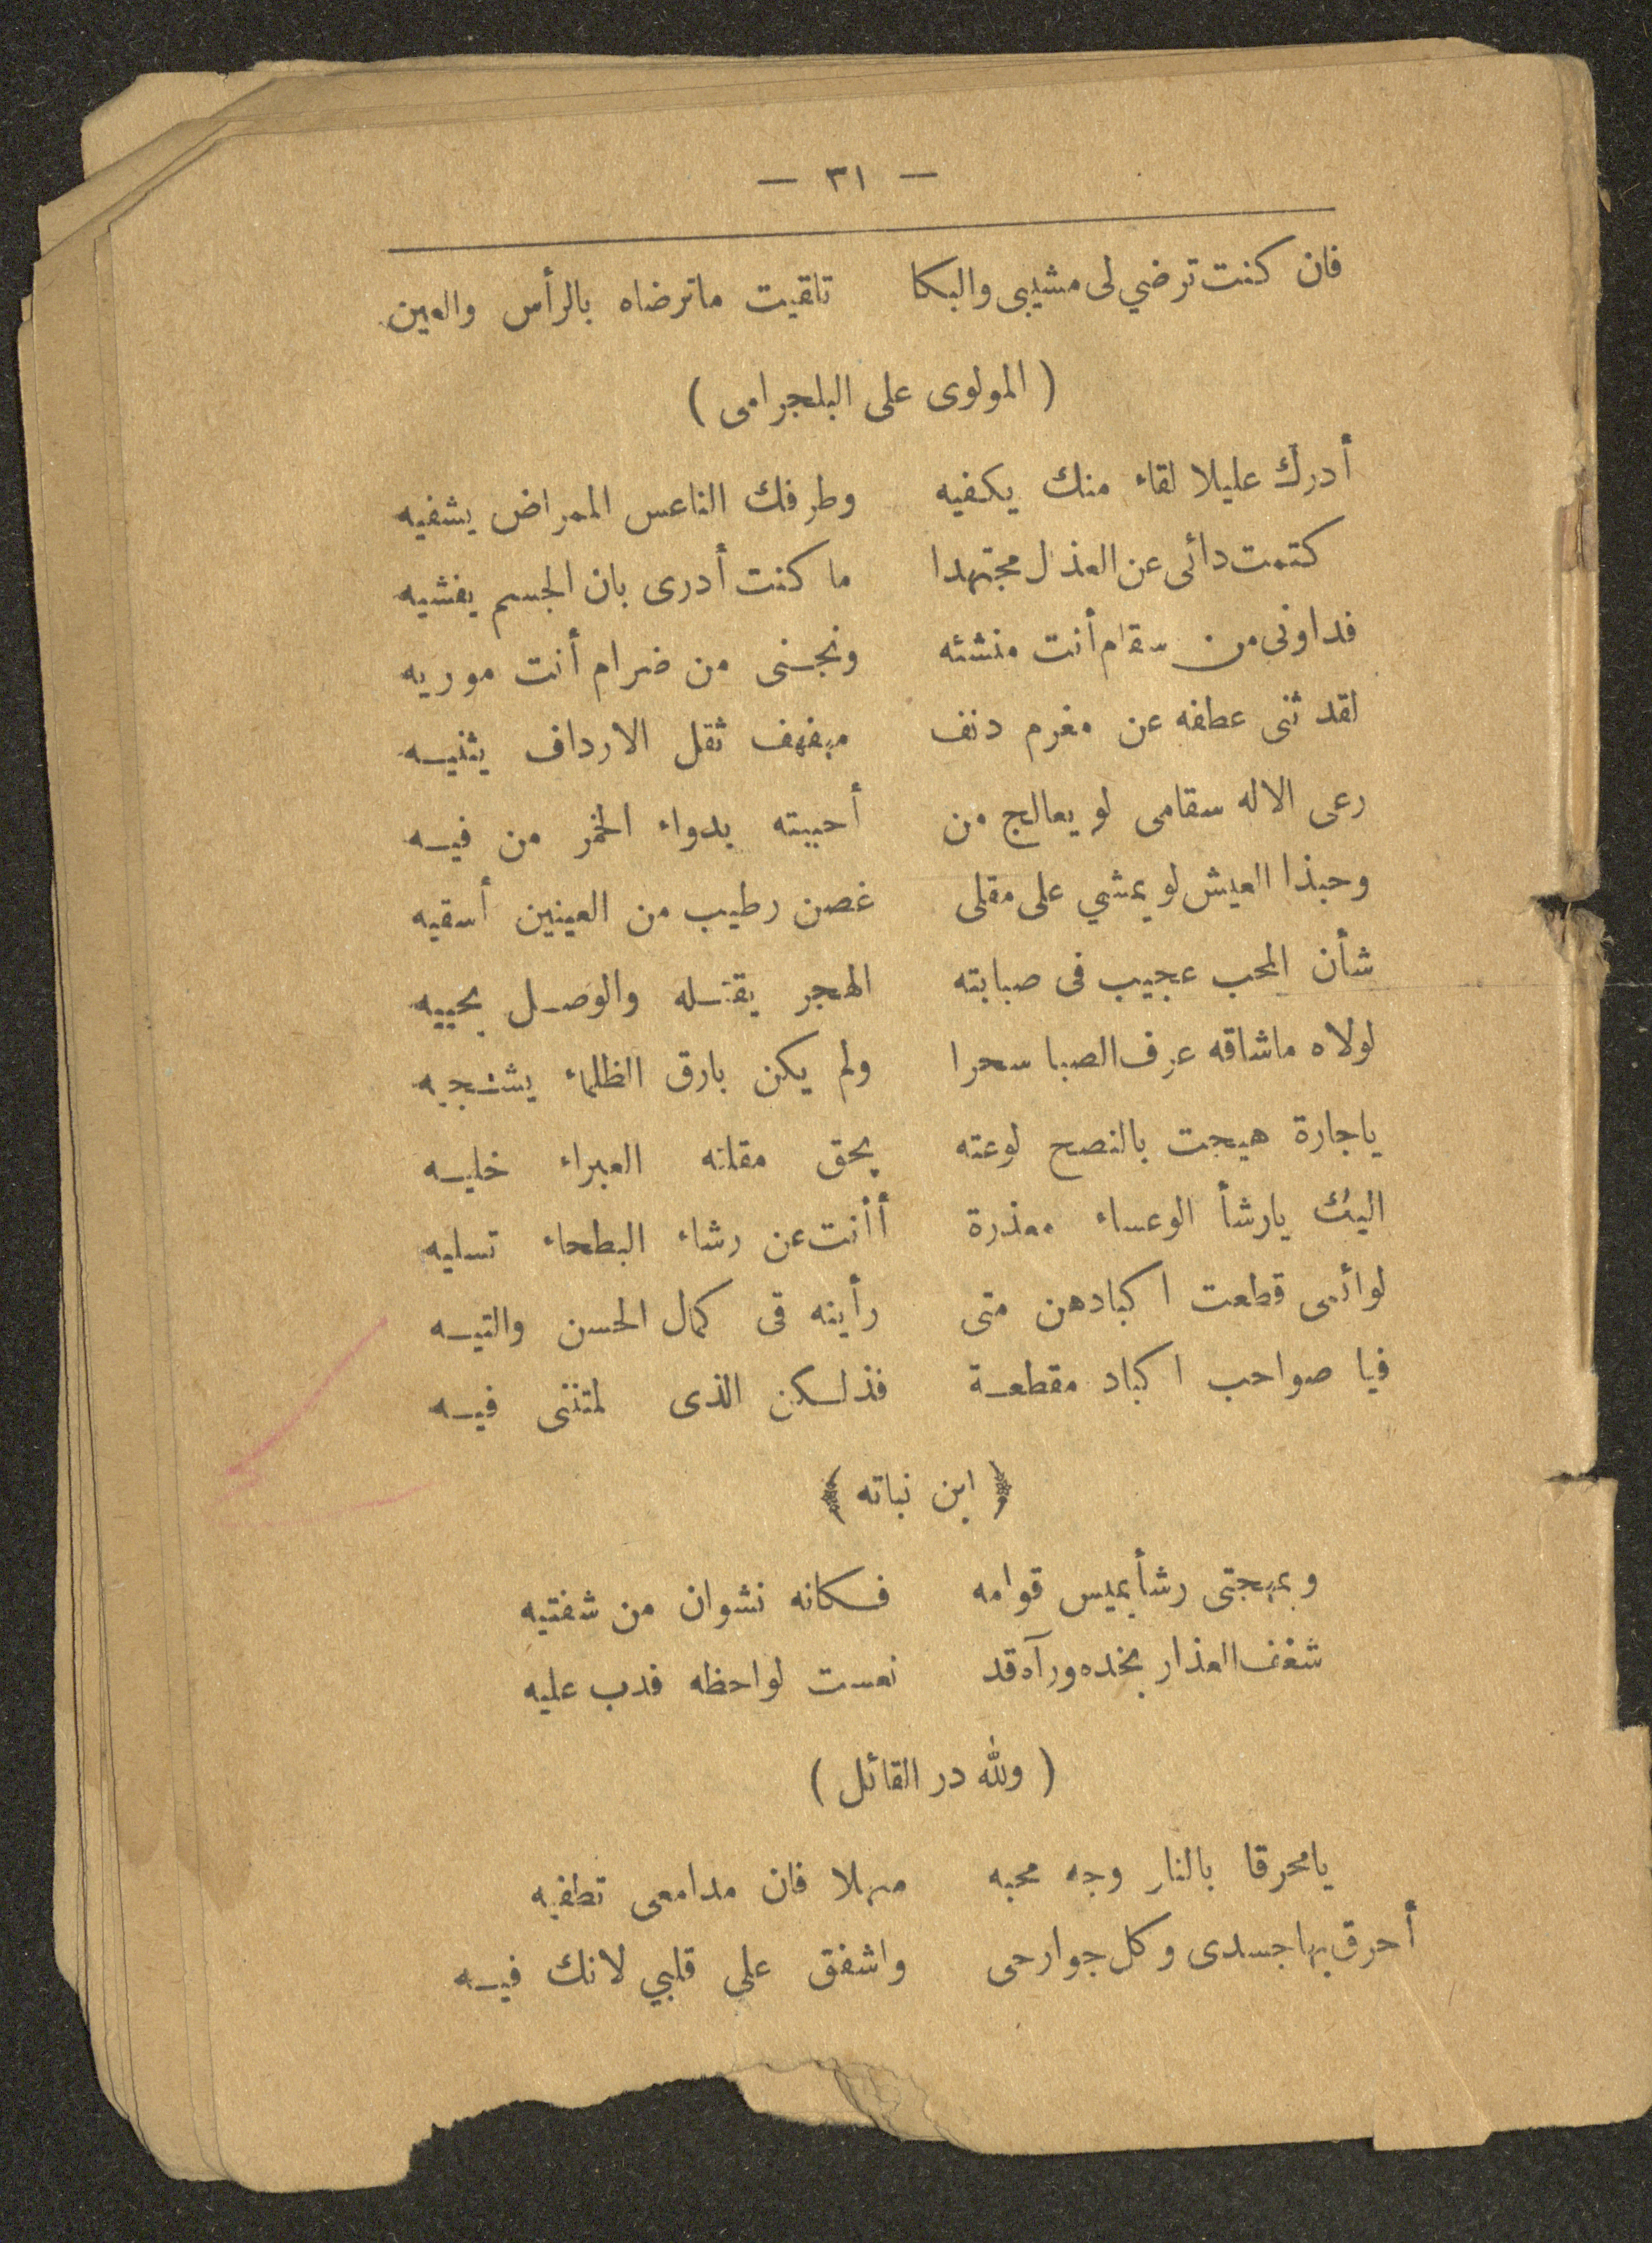 — ٣١ —
فان كنت ترضي لى مشيبى والبكا تلقيت ماترضاه بالرأس والعين
( المولوى على البلجرامى )
أدرك عليلا لقاء منك يكفيه وطرفك الناعس الممراض يشفيه
كتمت دائى عن العذل مجتهدا ما كنت أدرى بان الجسم يفشيه
فداونى من سقام أنت منشئه ونجنى من ضرام أنت موريه
لقد ثنى عطفه عن مغرم دنف مهفهف ثقل الارداف يثنيه
رعى الاله سقامى لو يعالج من أحببته بدواء الخمر من فيه
وحبذا العيش لو يمشي على مقلى غصن رطيب من العينين أسقيه
شأن المحب عجيب فى صبابته الهجر يقتله والوصل يحييه
لولاه ماشاقه عرف الصبا سحرا ولم يكن بارق الظلماء يشجيه
ياجارة هيجت بالنصح لوعته بحق مقلته العبراء خليه
اليك يارشأ الوعساء معذرة أأنت عن رشاء البطحاء تسليه
لوائمى قطعت اكبادهن متى رأينه فى كمال الحسن والتيه
فيا صواحب اكباد مقطعة فذلكن الذى لمتننى فيه
﴿ ابن نباته ﴾
وبمهجتى رشأ يميس قوامه فكانه نشوان من شفتيه
شغف العذار بخده ورآه قد نعست لواحظه فدب عليه
( ولله در القائل )
يامحرقا بالنار وجه محبه مهلا فان مدامعى تطفيه
أحرق بها جسدى وكل جوارحى واشفق على قلبي لانك فيه